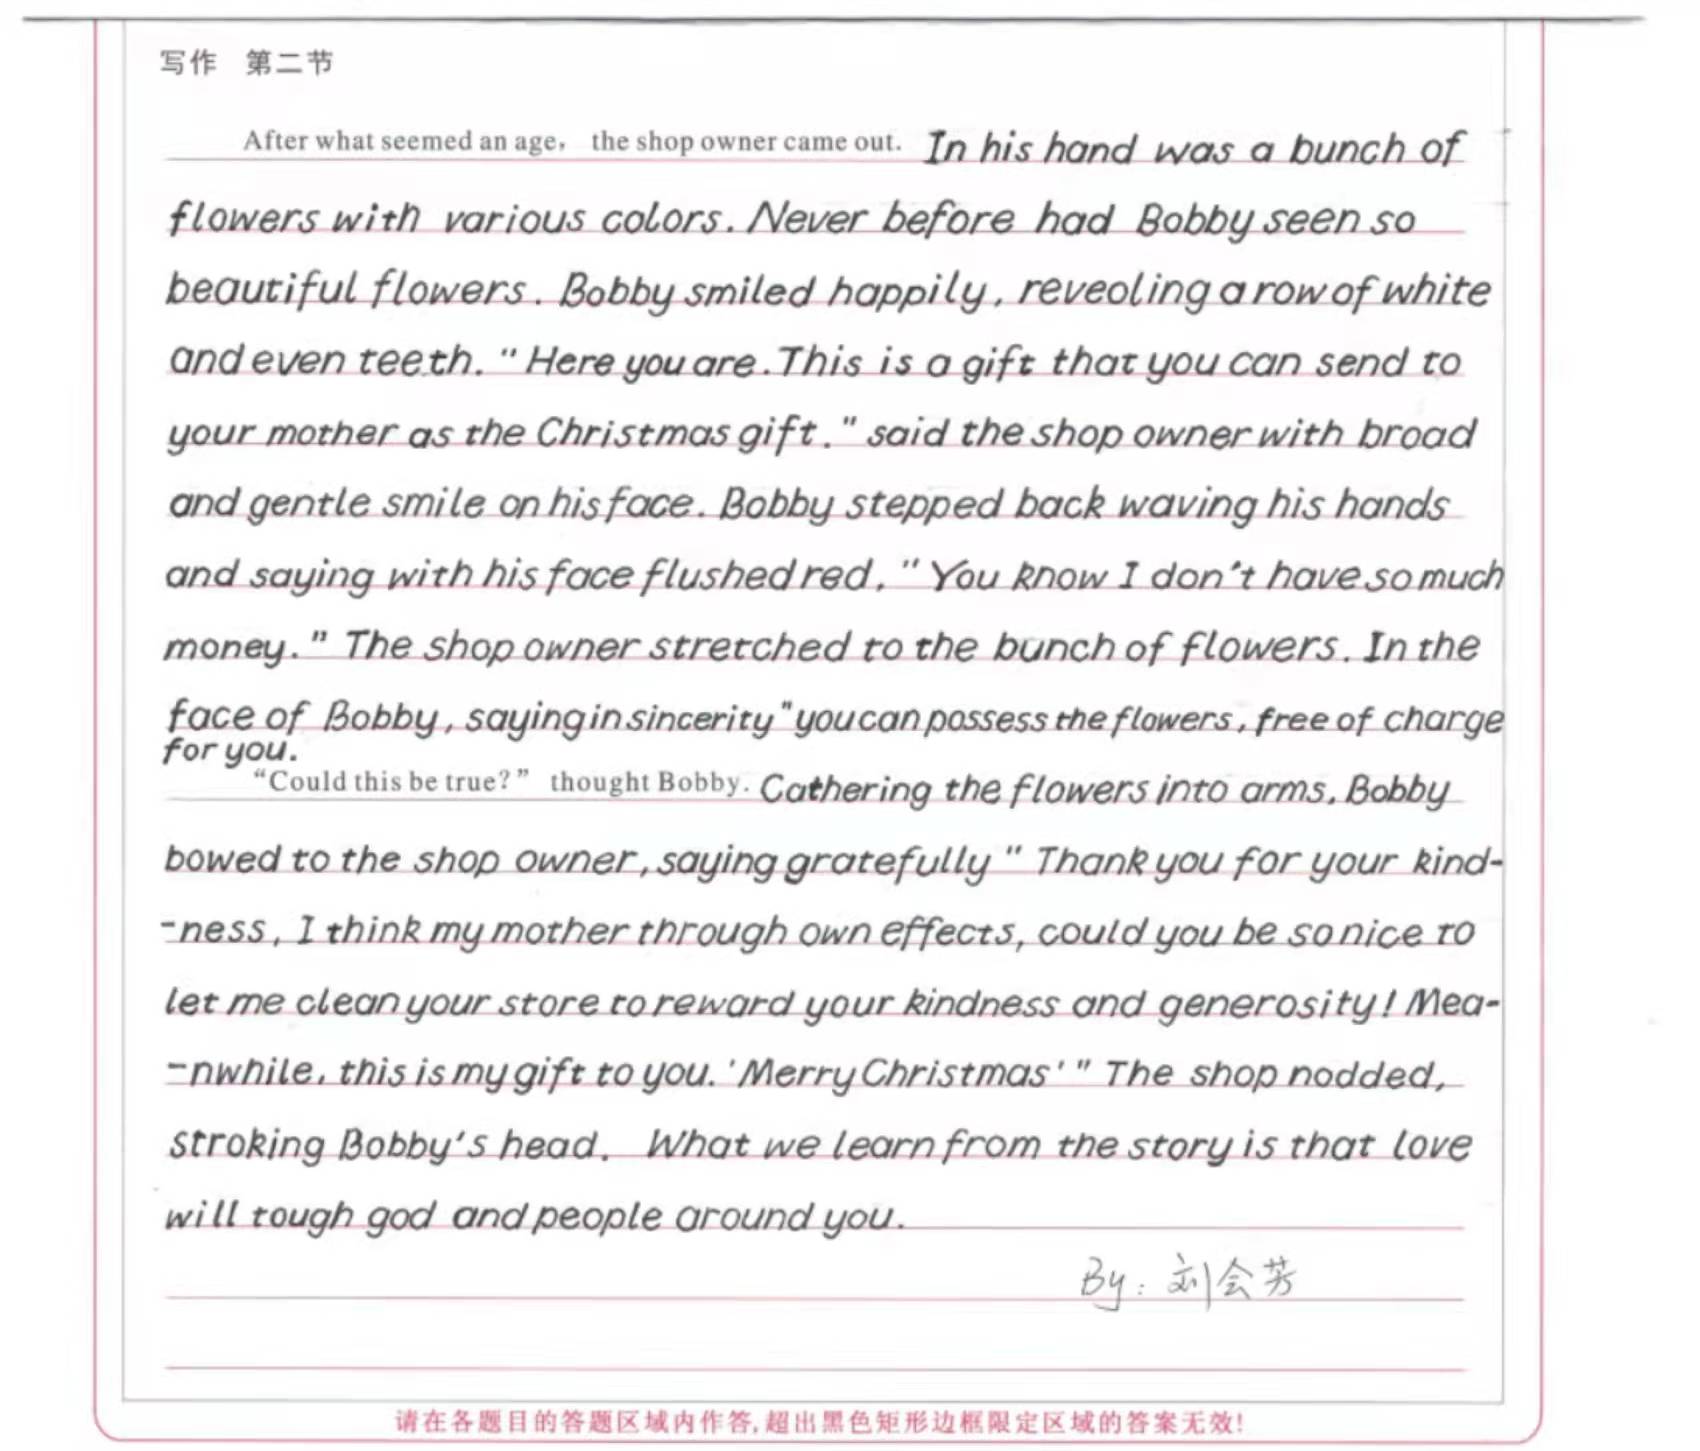 写作 第二节
After what seemed an age, the shop owner came out. In his hand was a bunch of
flowers with various colors. Never before had Bobby seen so
beautiful flowers. Bobby smiled happily, reveoling a row of white
and even teeth. "Here you are. This is a gift that you can send to
your mother as the Christmas gift." said the shop owner with broad
and gentle smile on his face. Bobby stepped back waving his hands
and saying with his face flushed red, "You know I don't have so much
money." The shop owner stretched to the bunch of flowers. In the
face of Bobby, saying in sincerity "you can possess the flowers, free of charge
for you.
"Could this be true?" thought Bobby. Cathering the flowers into arms, Bobby
bowed to the shop owner, saying gratefully "Thank you for your kind-
-ness, I think my mother through own effects, could you be so nice to
let me clean your store to reward your kindness and generosity! Mea-
-nwhile, this is my gift to you. 'Merry Christmas'" The shop nodded,
stroking Bobby's head. What we learn from the story is that love
will tough god and people around you.
By: 刘会芳
请在各题目的答题区域内作答,超出黑色矩形边框限定区域的答案无效!